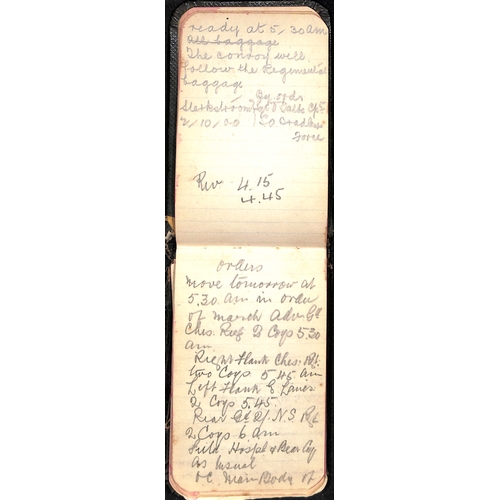 ready at 5/30 am
All baggage
The convoy will
follow the Regimental
baggage
By ordr
2/10/00
Force
Rev 4.15
4.45
orders
Move tomorrow at
5.30 am in order
of march Adv. Gd
Ches. Reg 2 Coys 5.30
am
Right Flank Ches. Rgt.
two Coys 5.45 am
Left Flank E Lancs
2 Coys 5.45.
Rear Gd N.S. Rgt
2 Coys 6 am
Field Hospl & Bear Coy
as usual
O.C. Main Body of